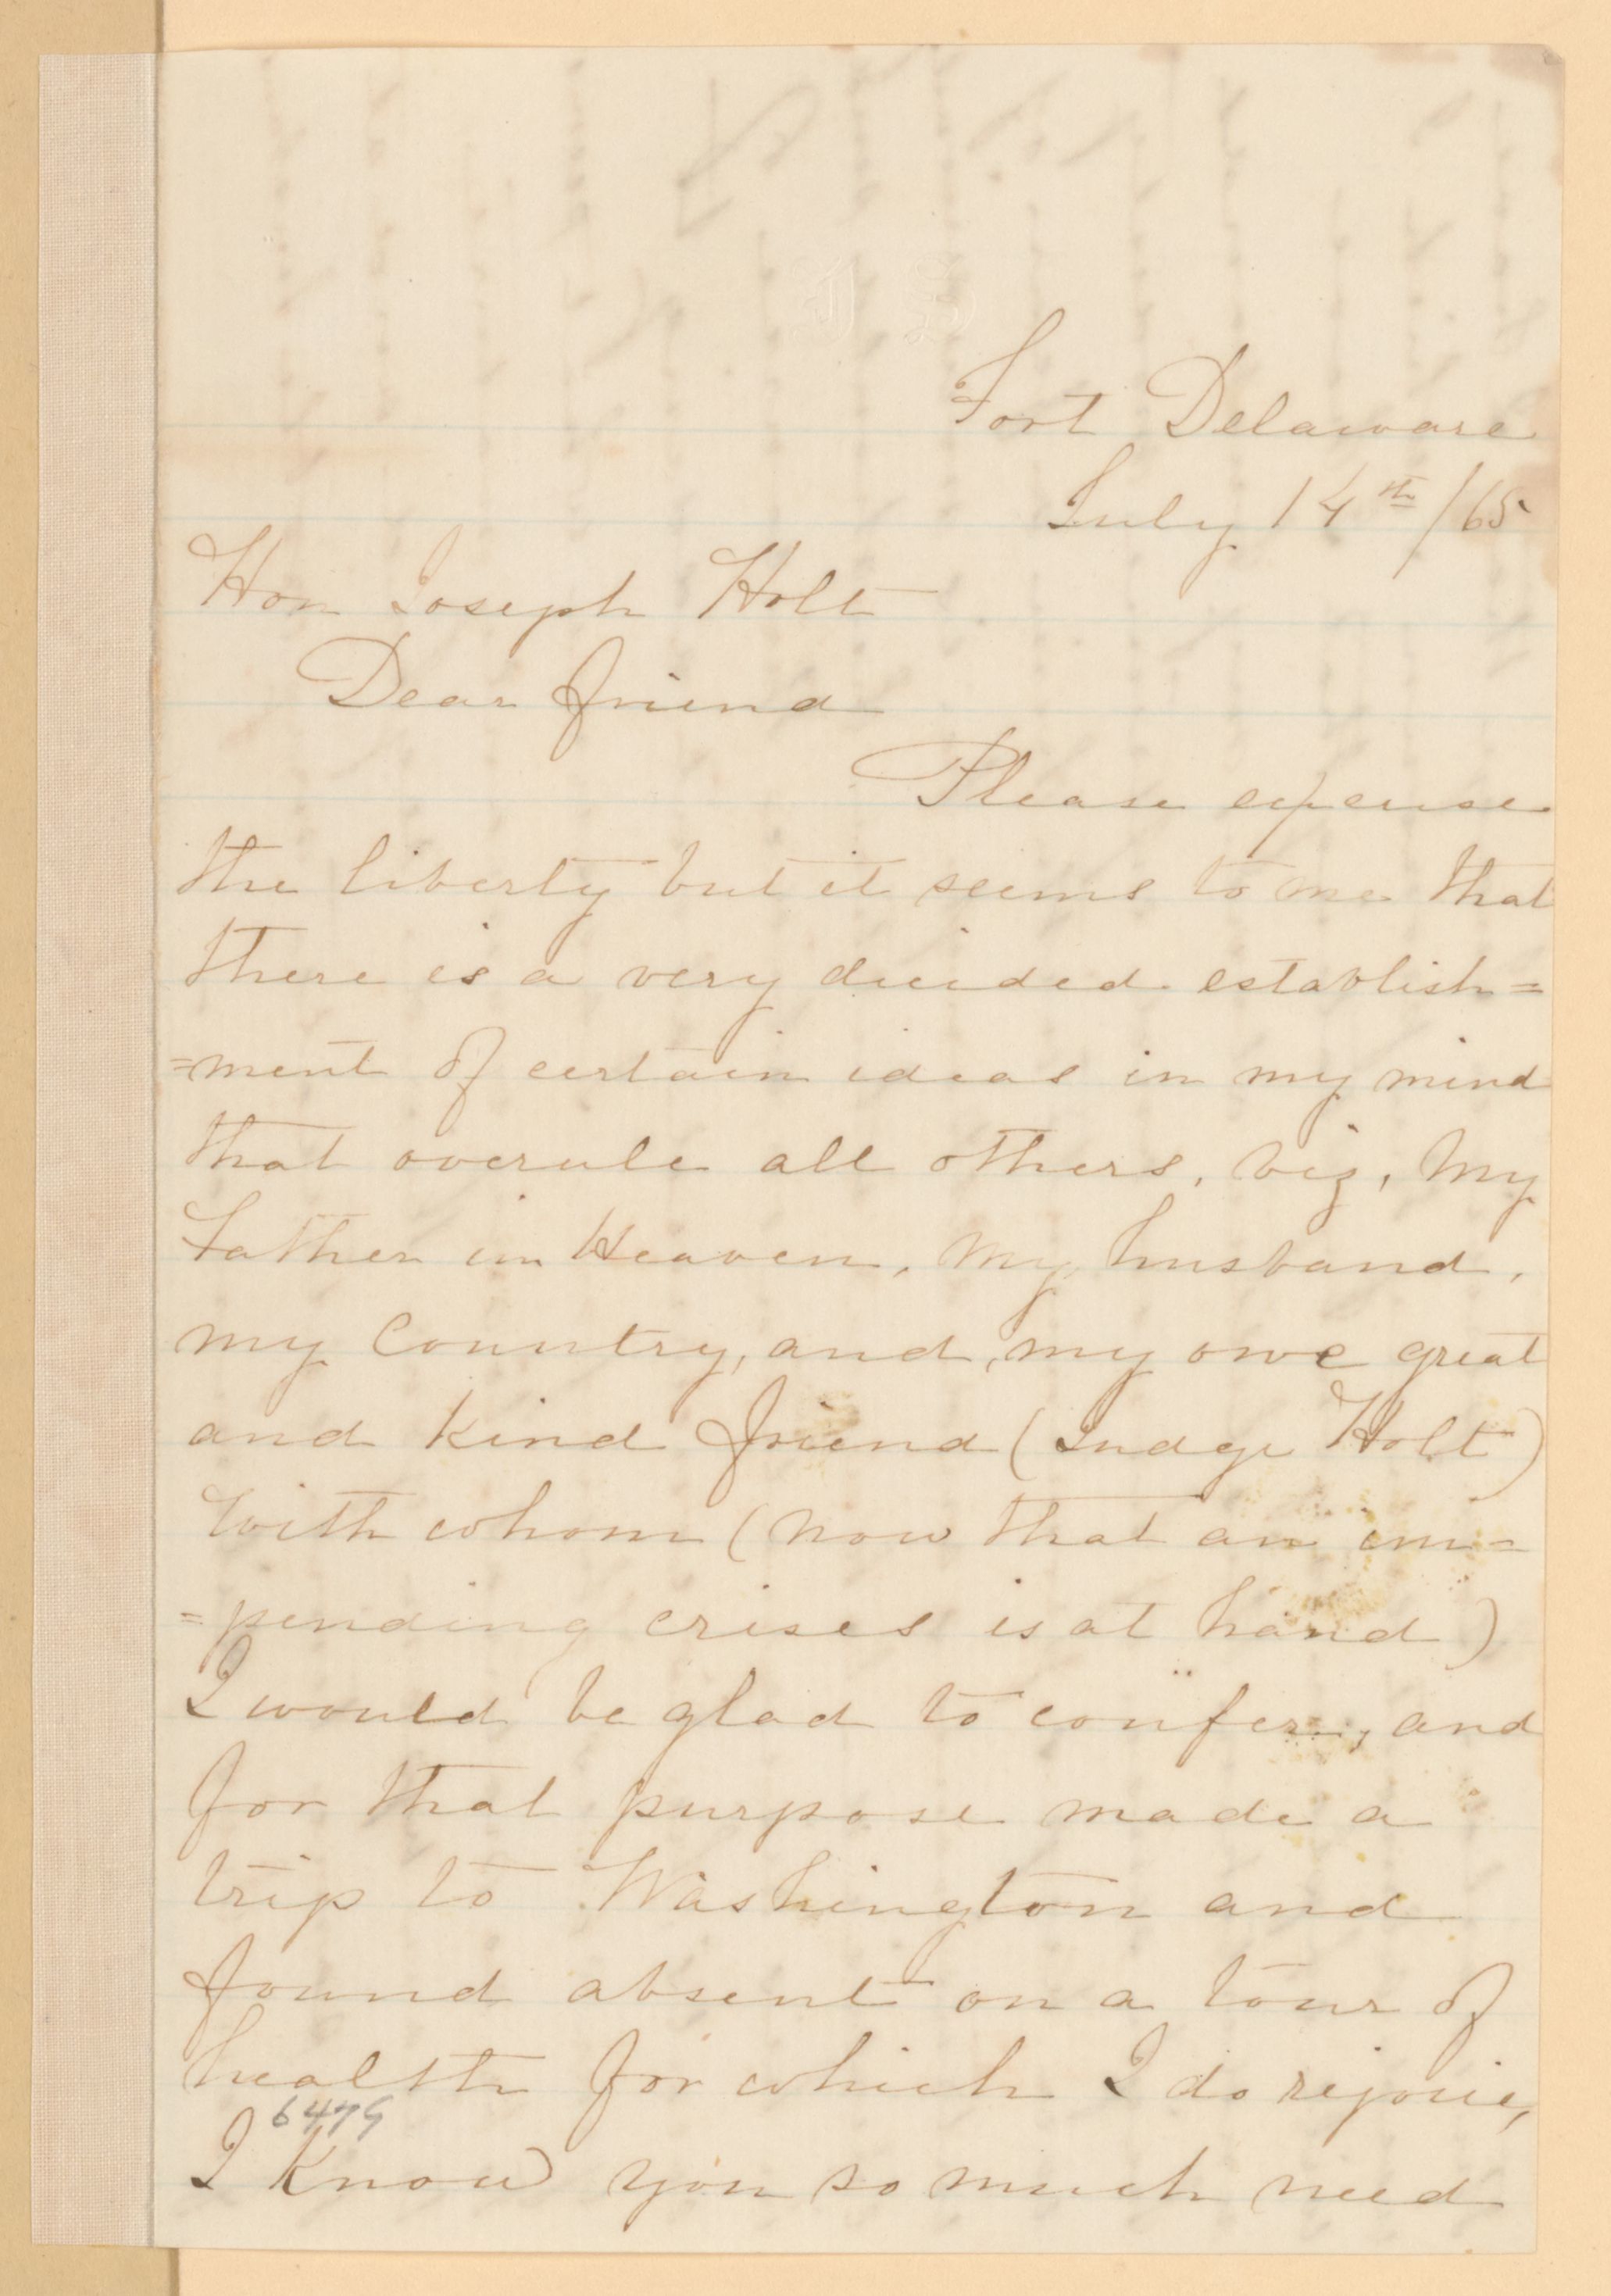 J S
Fort Delaware
July 14th /65
Hon Joseph Holt
Dear friend
Please expense
the liberty but it seems to me that
there is a very decided establish=
=ment of certain ideas in my mind
that overule all others, viz, My
Father in Heaven, My husband,
my Country, and, my own great
and kind friend (Judge Holt)
with whom (now that an im=
=pending crises is at hand)
I would be glad to confer, and
for that purpose made a
trip to Washington and
found absent on a tour of
health for which I do rejoice,
6479
I know you so much need